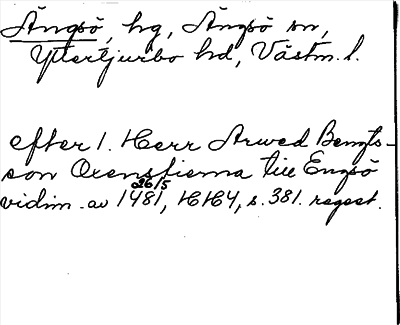 Ängsö, hg, Ängsö sn,
Yttertjurbo hd, Västm. l.
efter 1. Herr Arwed Bengts-
son Oxenstierna till Engsö
vidim. av 26/5 1481, HH4, s. 381. regest.